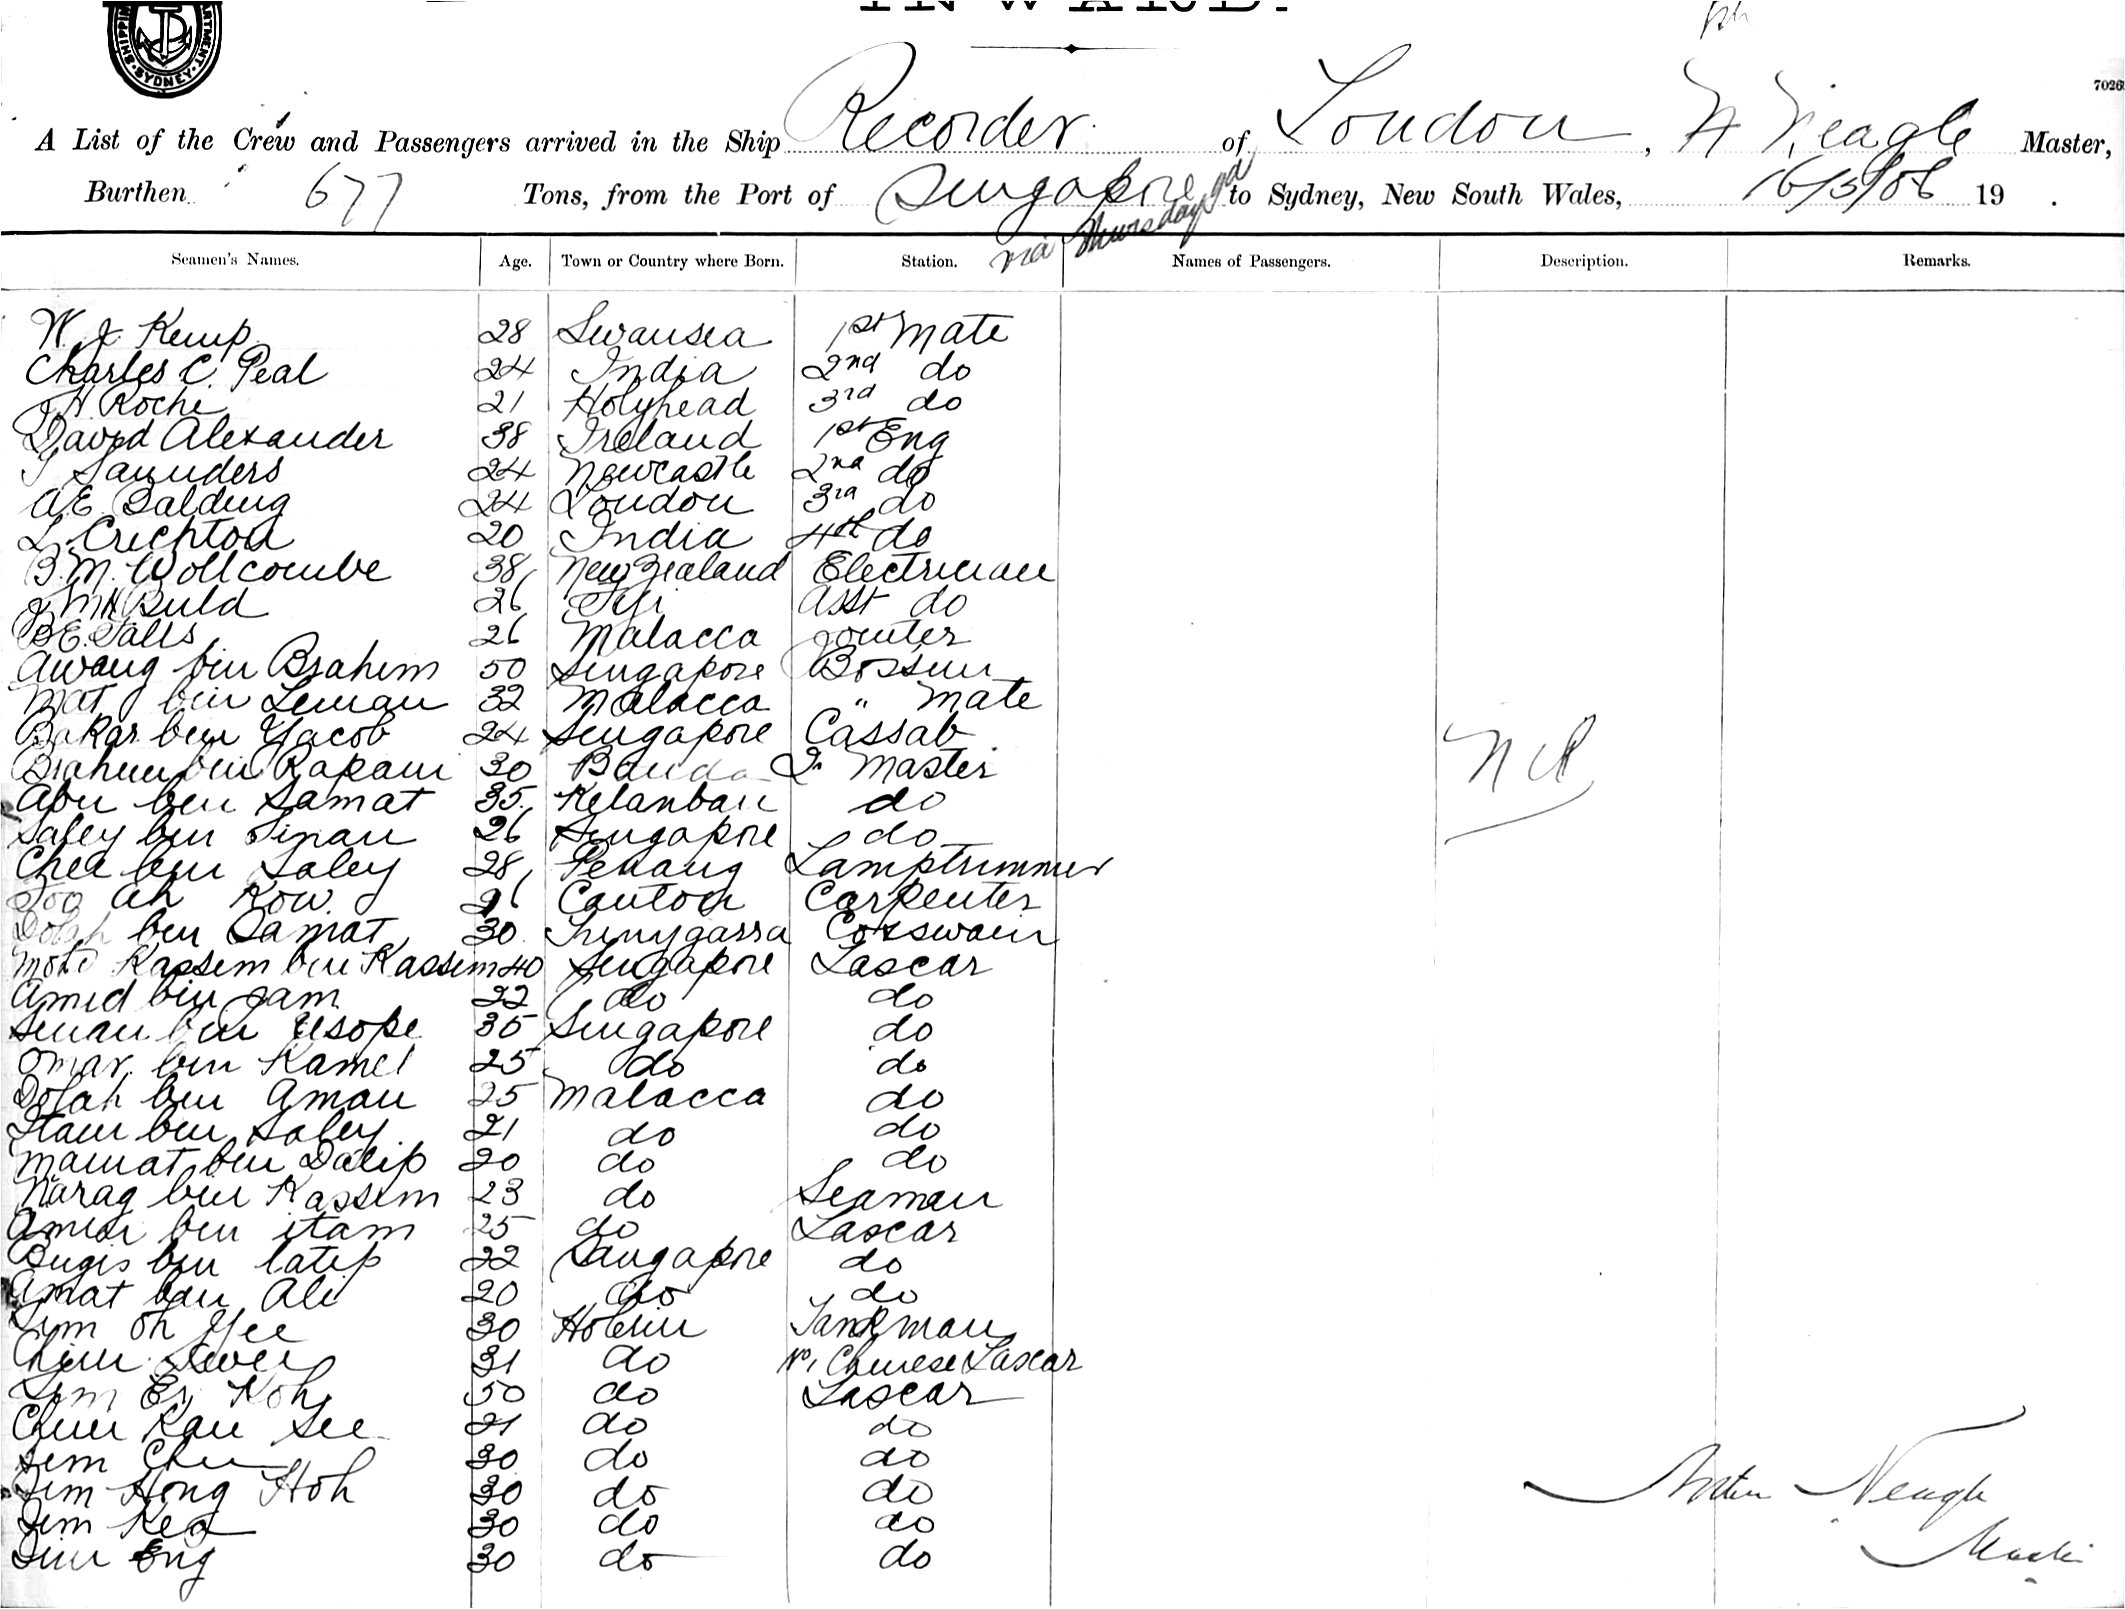 INWARD.
SHIPPING DEPARTMENT SYDNEY
7026
A List of the Crew and Passengers arrived in the Ship Recorder of London, Neagle Master,
Burthen 677 Tons, from the Port of Singapore to Sydney, New South Wales, 16/3/08 19 .
via Thursday Id
Seamen's Names. Age. Town or Country where Born. Station. Names of Passengers. Description. Remarks.
W. J. Kemp 28 Swansea 1st Mate
Charles C. Peal 24 India 2nd do
J H. Roche 21 Holyhead 3rd do
David Alexander 38 Ireland 1st Eng
J Saunders 24 Newcastle 2nd do
A.E. Balding 24 London 3rd do
L Crichton 20 India 4th do
B.M. Wollcombe 38 New Zealand Electrician
26 Fiji Asst do
B E. 26 Malacca Jointer
Awang bin Brahim 50 Singapore Bossun
Mat bin Leman 32 Malacca " Mate
Bakar bin Yacob 24 Singapore Cassab
Brahim bin Rapani 30 Banda Qr Master
Abu bin Samat 35 Kelantan do
Saley bin Sinan 26 Singapore do
Chee bin Saley 28 Penang Lamptrimmer
Foo Ah Kow 26 Canton Carpenter
Dolah bin Samat 30 Coxswain
Mohd Kassem bin Kassim 40 Singapore Lascar
Amid bin Jam 22 do do
Senan bin Usope 35 Singapore do
Omar bin Kamel 25 do do
Dolah bin Aman 25 Malacca do
Itam bin Saley 21 do do
Mamat bin Dalip 20 do do
Narag bin Kassim 23 do Seaman
Amin bin itam 25 do Lascar
Bugis bin latip 22 Singapore do
Amat bin Ali 20 do do
Lim Oh Yee 30 Tankman
31 do No 1 Chinese Lascar
Lim Er Koh 50 do Lascar
Chin Kau See 21 do do
Lim Chu 30 do do
Lim Hong Hoh 30 do do
Lim Kea 30 do do
Lim Eng 30 do do
Neagle
Master